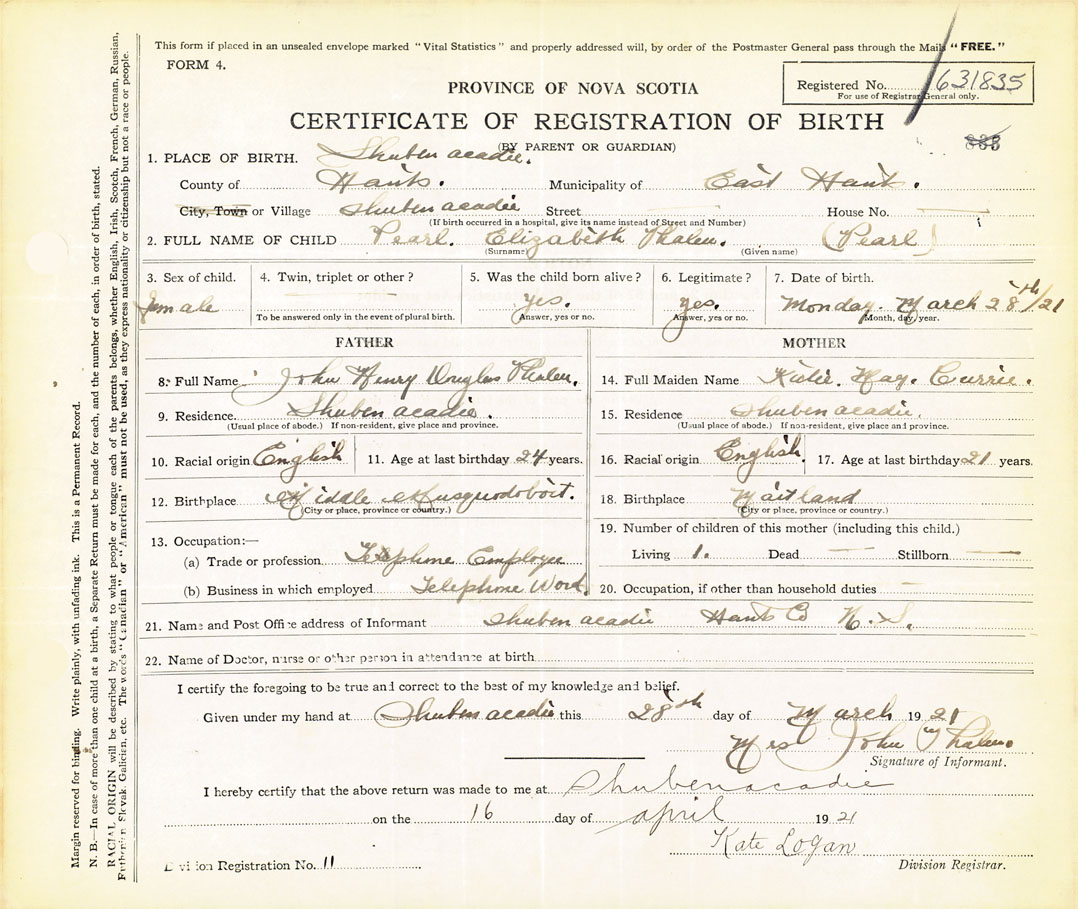 This form if placed in an unsealed envelope marked "Vital Statistics" and properly addressed will, by order of the Postmaster General pass through the Mails "FREE."
FORM 4.
Registered No. 631835
For use of Registrar General only.
PROVINCE OF NOVA SCOTIA
CERTIFICATE OF REGISTRATION OF BIRTH
(BY PARENT OR GUARDIAN)
1. PLACE OF BIRTH. Shubenacadie.
County of Hants. Municipality of East Hants.
City, Town or Village Shubenacadie Street House No.
(If birth occurred in a hospital, give its name instead of Street and Number)
2. FULL NAME OF CHILD Pearl. Elizabeth Phalen. (Pearl)
(Surname) (Given name)
3. Sex of child. 4. Twin, triplet or other? 5. Was the child born alive? 6. Legitimate? 7. Date of birth.
Female yes. yes. Monday. March 28th/21
To be answered only in the event of plural birth. Answer, yes or no. Answer, yes or no. Month, day, year.
FATHER
8. Full Name John Henry Douglas Phalen.
9. Residence. Shubenacadie.
(Usual place of abode.) If non-resident, give place and province.
10. Racial origin English 11. Age at last birthday 24 years.
12. Birthplace Middle Musquodoboit.
(City or place, province or country.)
13. Occupation:—
(a) Trade or profession Telephone Employee
(b) Business in which employed Telephone Word.
MOTHER
14. Full Maiden Name Katie. May. Currie.
15. Residence Shubenacadie.
(Usual place of abode.) If non-resident, give place and province.
16. Racial origin English. 17. Age at last birthday 21 years.
18. Birthplace Maitland
(City or place, province or country.)
19. Number of children of this mother (including this child.)
Living 1. Dead Stillborn
20. Occupation, if other than household duties
21. Name and Post Office address of Informant Shubenacadie Hants Co N. S.
22. Name of Doctor, nurse or other person in attendance at birth
I certify the foregoing to be true and correct to the best of my knowledge and belief.
Given under my hand at Shubenacadie this 28th day of March 1921
Mrs John Phalen
Signature of Informant.
I hereby certify that the above return was made to me at Shubenacadie
on the 16 day of april 1921
Kate Logan
Division Registration No. 11 Division Registrar.
Margin reserved for binding. Write plainly, with unfading ink. This is a Permanent Record.
N. B.—In case of more than one child at a birth, a Separate Return must be made for each, and the number of each, in order of birth, stated.
RACIAL ORIGIN will be described by stating to what people or tongue each of the parents belongs, whether English, Irish, Scotch, French, German, Russian,
Ruthenian, Slovak, Galicien, etc. The words "Canadian" or "American" must not be used, as they express nationality or citizenship but not a race or people.